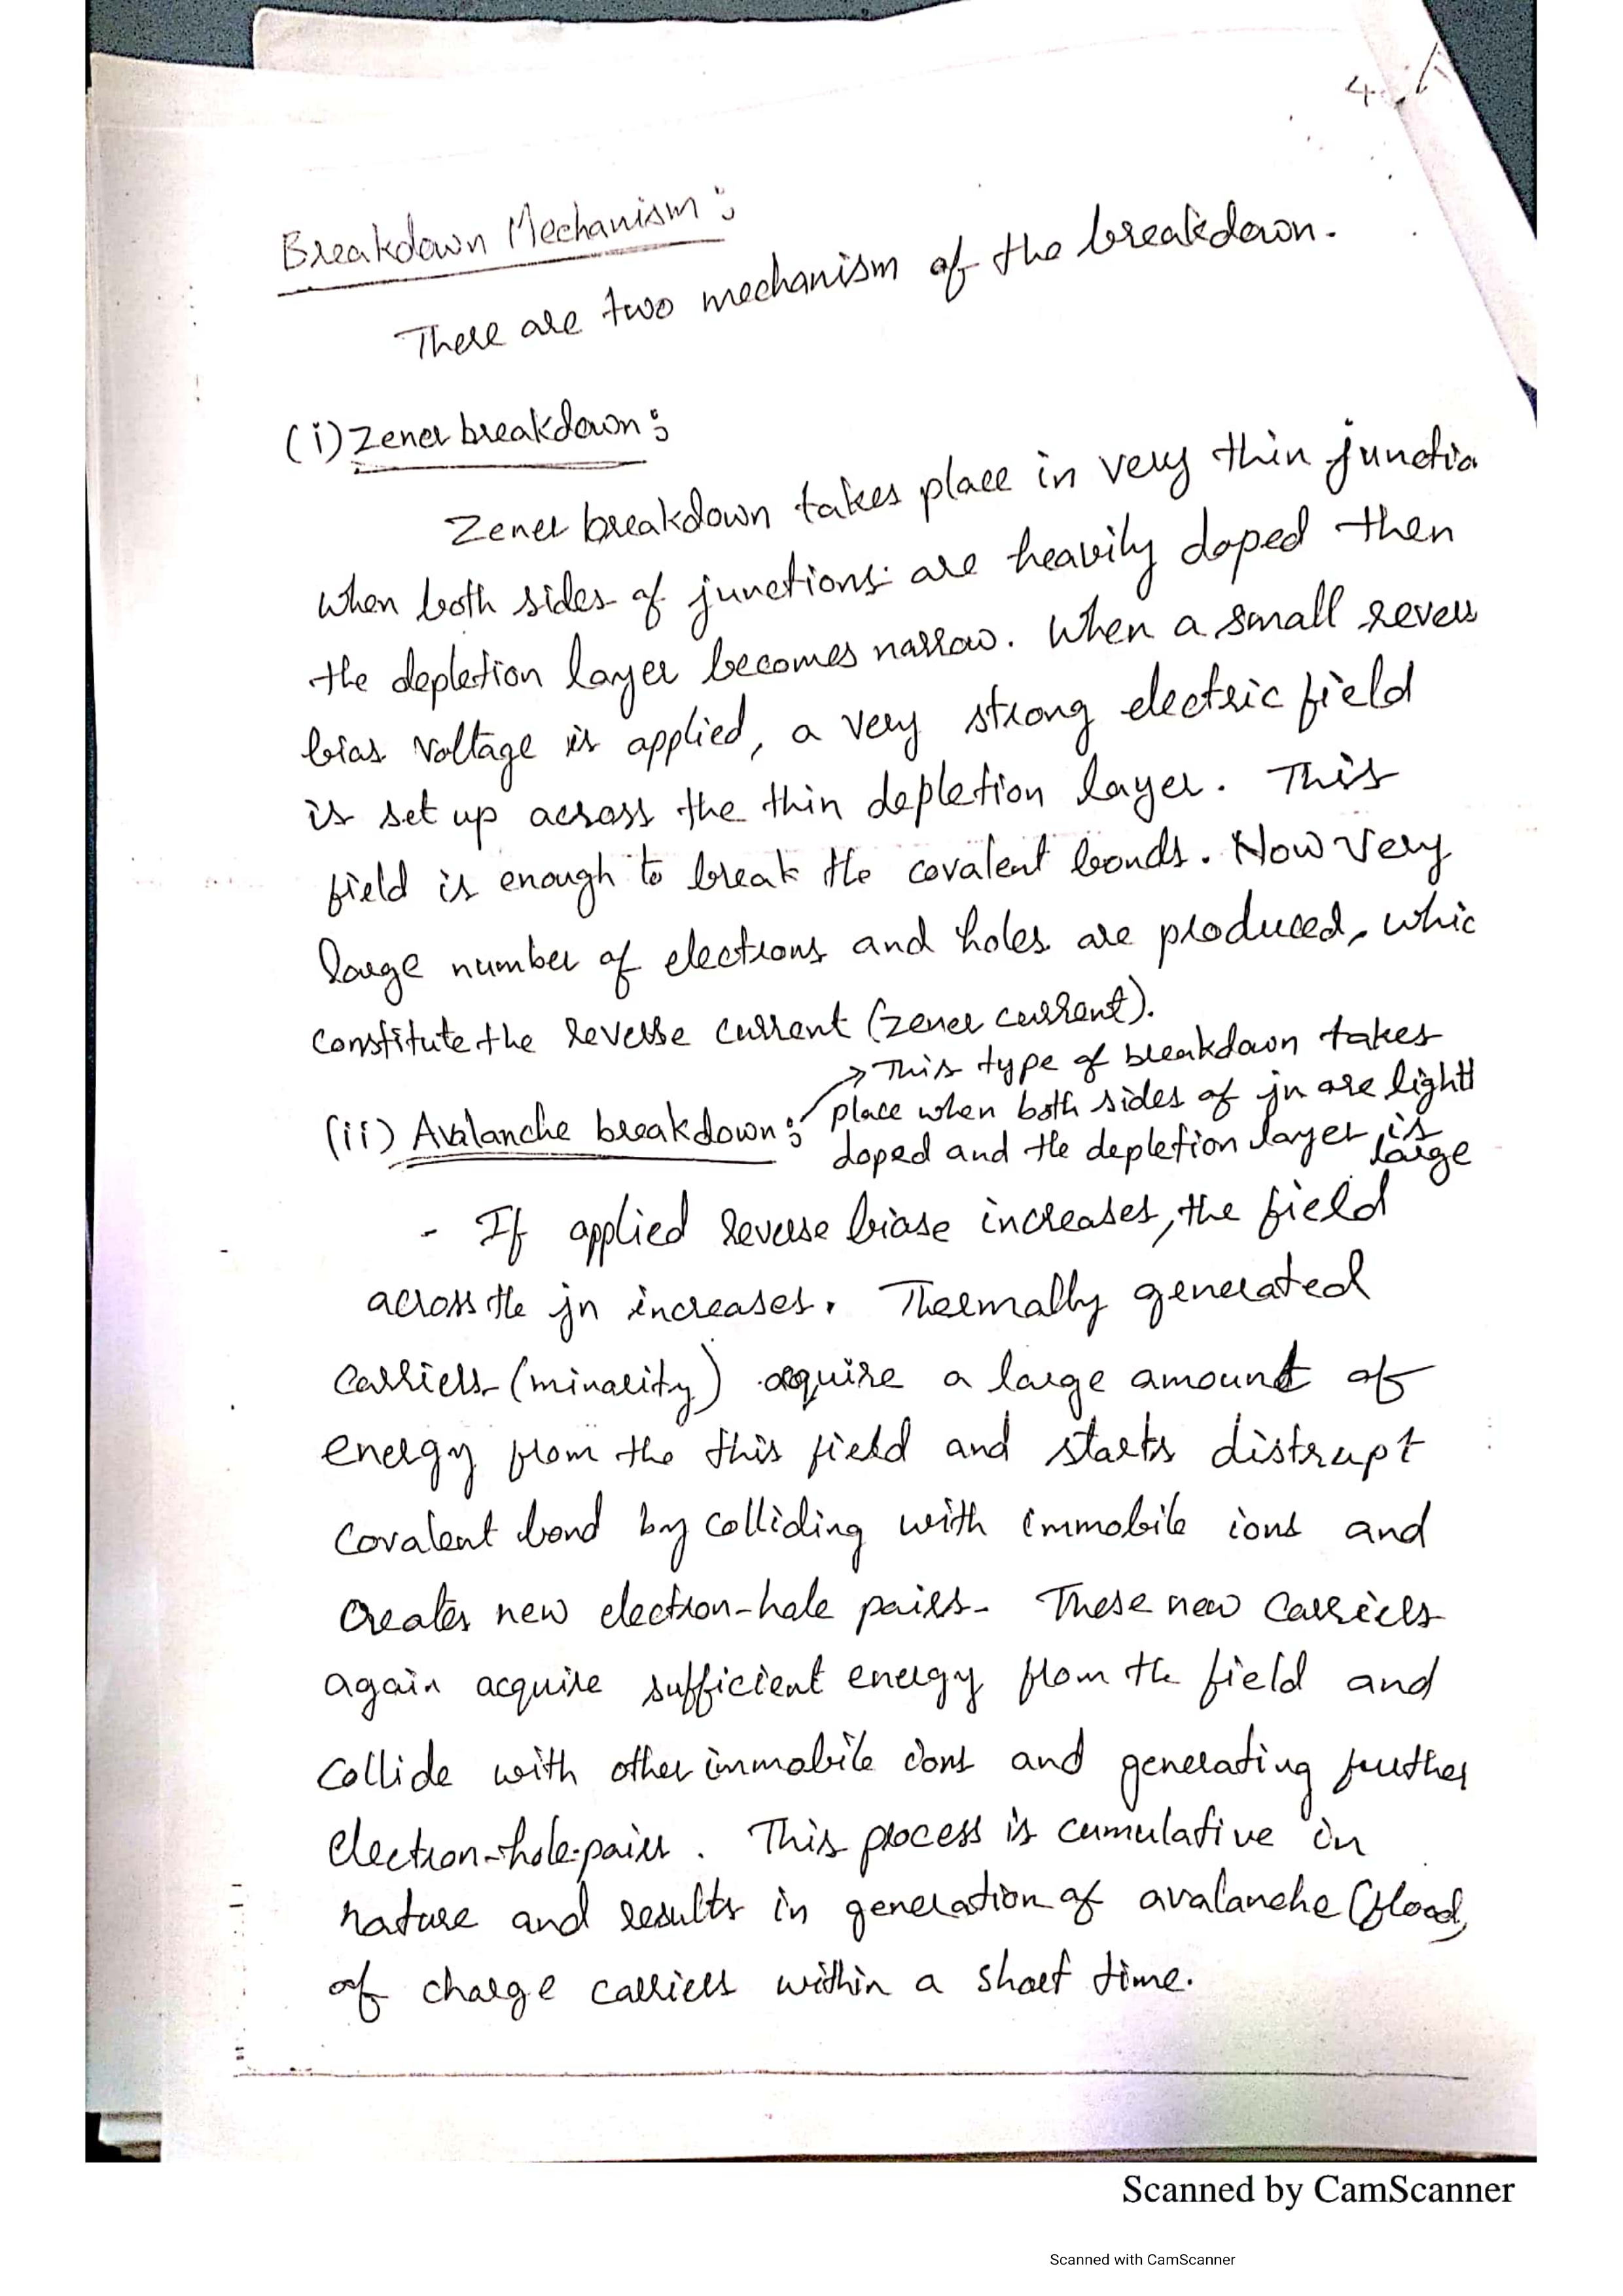 4.
Breakdown Mechanism:
There are two mechanism of the breakdown.
(i) Zener breakdown:
Zener breakdown takes place in very thin junctio
when both sides of junctions are heavily doped then
the depletion layer becomes narrow. When a small revers
bias voltage is applied, a very strong electric field
is set up across the thin depletion layer. This
field is enough to break the covalent bonds. Now very
large number of electrons and holes are produced, whic
constitute the reverse current (zener current).
→ This type of breakdown takes
(ii) Avalanche breakdown: place when both sides of jn are lightl
doped and the depletion layer is
large
- If applied reverse biase increases, the field
across the jn increases. Thermally generated
carriers (minority) acquire a large amount of
energy from the this field and starts distrupt
covalent bond by colliding with immobile ions and
creates new electron-hole pairs. These new carriers
again acquire sufficient energy from the field and
collide with other immobile ions and generating further
electron-hole-pairs. This process is cumulative in
nature and results in generation of avalanche (flood)
of charge carriers within a short time.
Scanned by CamScanner
Scanned with CamScanner